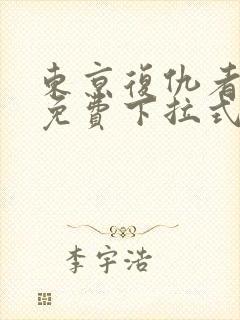 東京復仇者
免費下拉式
李宇浩